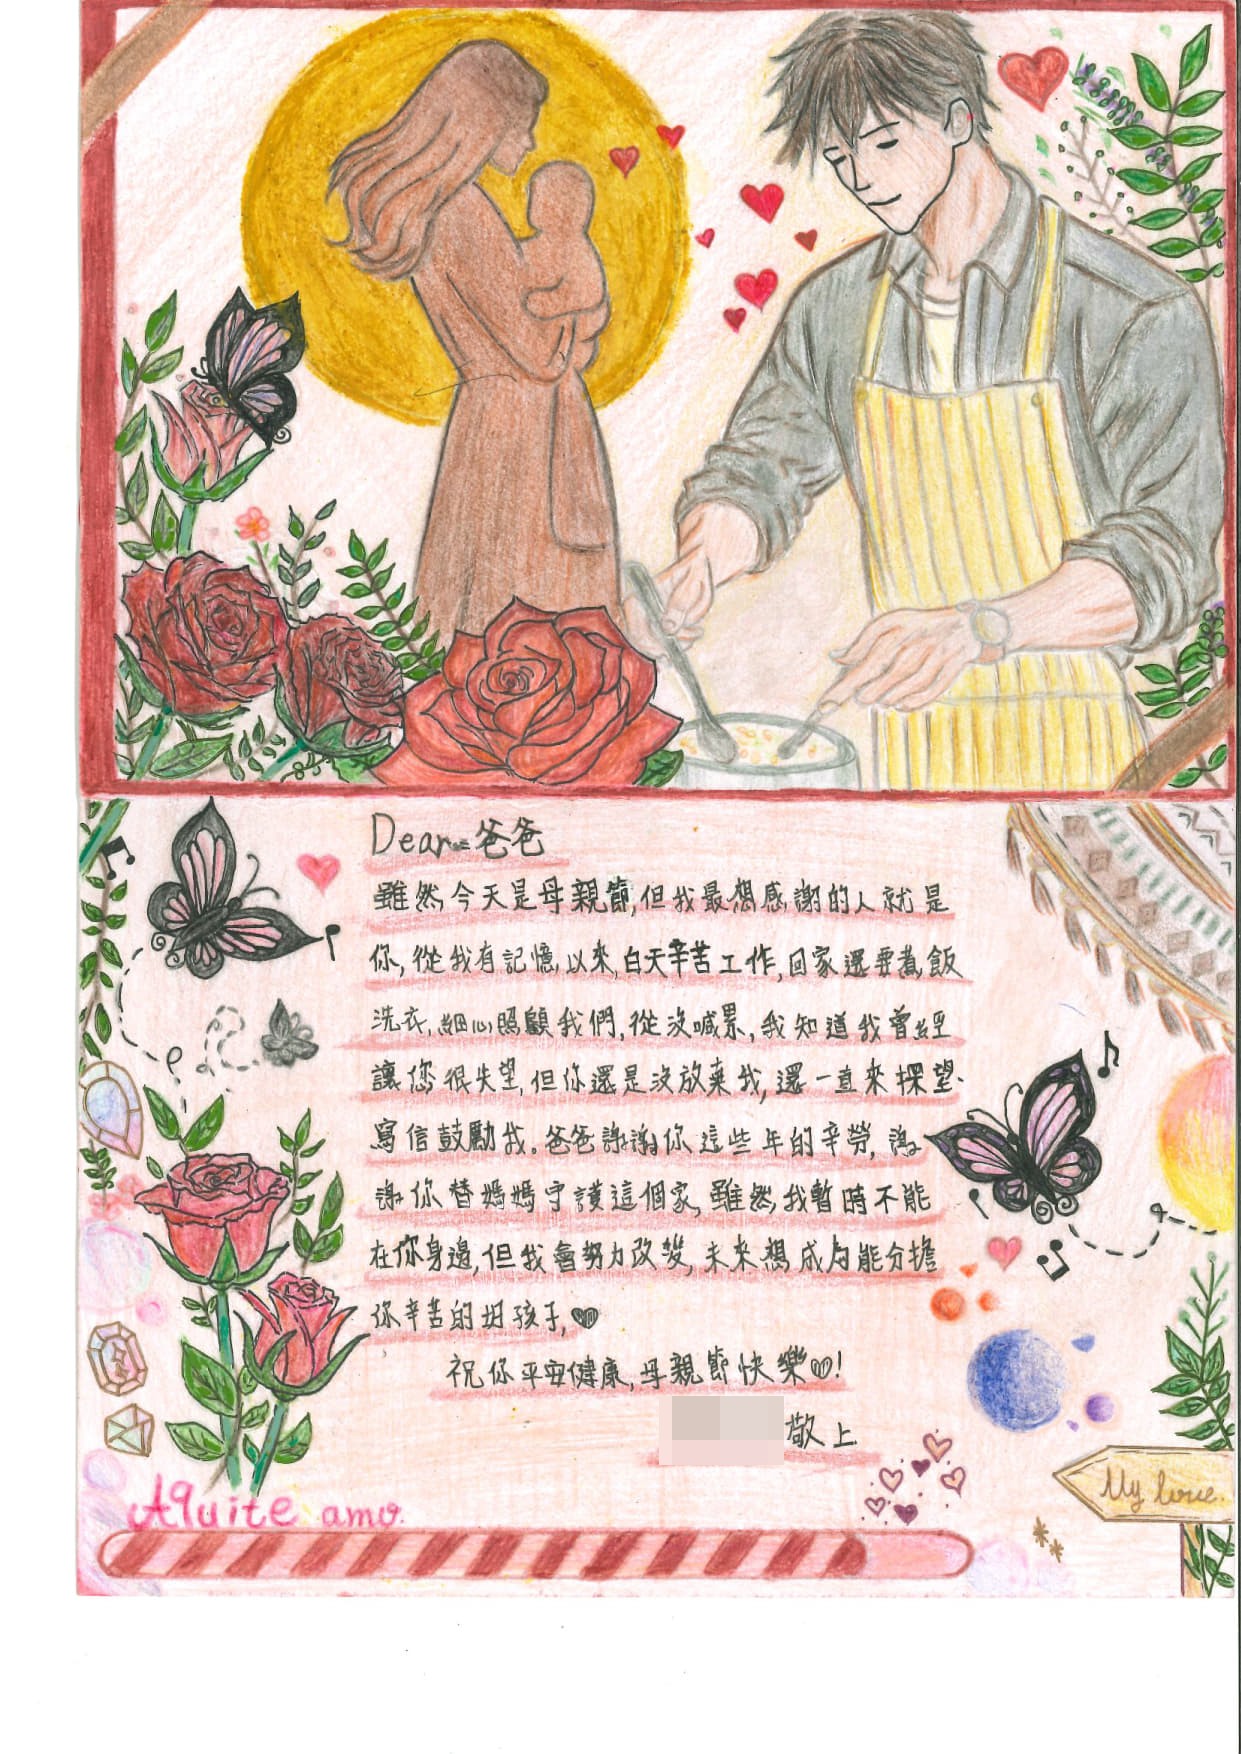 Dear=爸爸
雖然今天是母親節,但我最想感謝的人就是
你,從我有記憶以來,白天辛苦工作,回家還要煮飯
洗衣,細心照顧我們,從沒喊累,我知道我曾經
讓您很失望,但你還是沒放棄我,還一直來探望.
寫信鼓勵我。爸爸謝謝你這些年的辛勞,謝
謝你替媽媽守護這個家,雖然我暫時不能
在你身邊,但我會努力改變,未來想成為能分擔
你辛苦的好孩子,♥
祝你平安健康,母親節快樂♡!
敬上
Aquite amo.
My love.